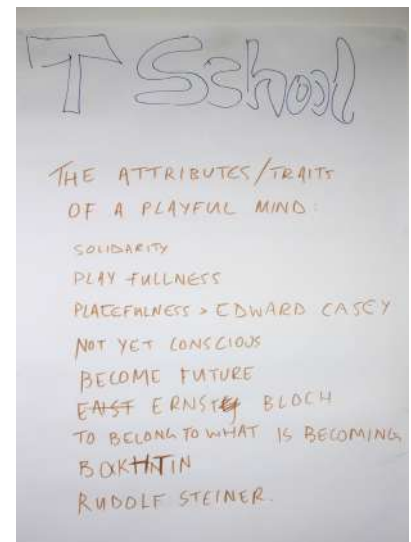 T School
THE ATTRIBUTES/TRAITS
OF A PLAYFUL MIND:
SOLIDARITY
PLAY FULLNESS
PLACEFULNESS > EDWARD CASEY
NOT YET CONSCIOUS
BECOME FUTURE
ERNST BLOCH
TO BELONG TO WHAT IS BECOMING
BAKHTIN
RUDOLF STEINER.